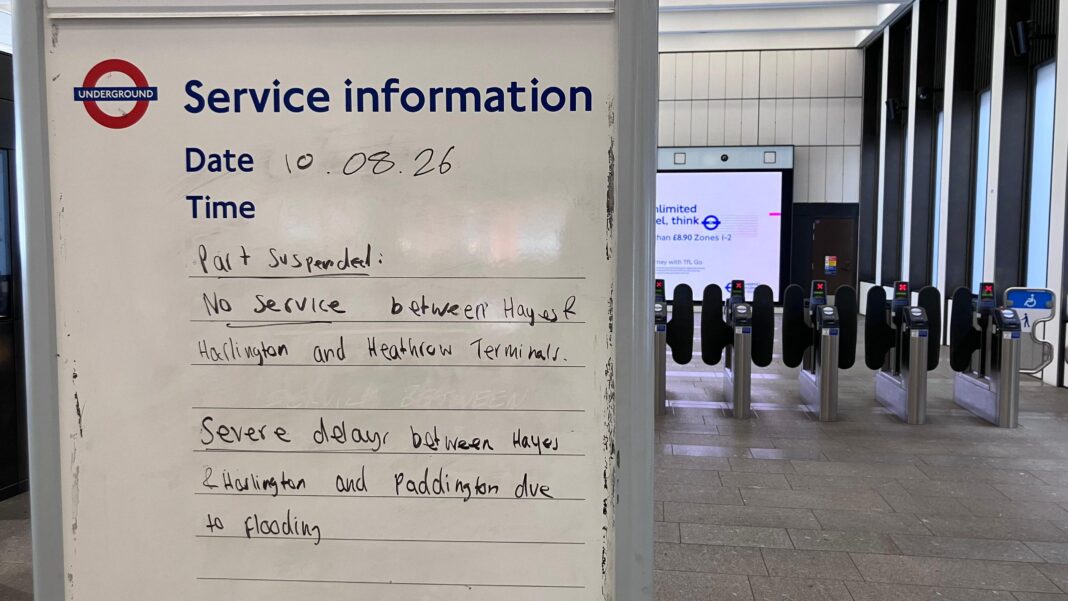 UNDERGROUND
Service information
Date 10.08.26
Time
Part Suspended:
No Service between Hayes &
Harlington and Heathrow Terminals.
BETWEEN
Severe delays between Hayes
& Harlington and Paddington due
to flooding
nlimited
el, think
han £8.90 Zones 1-2
ney with TfL Go